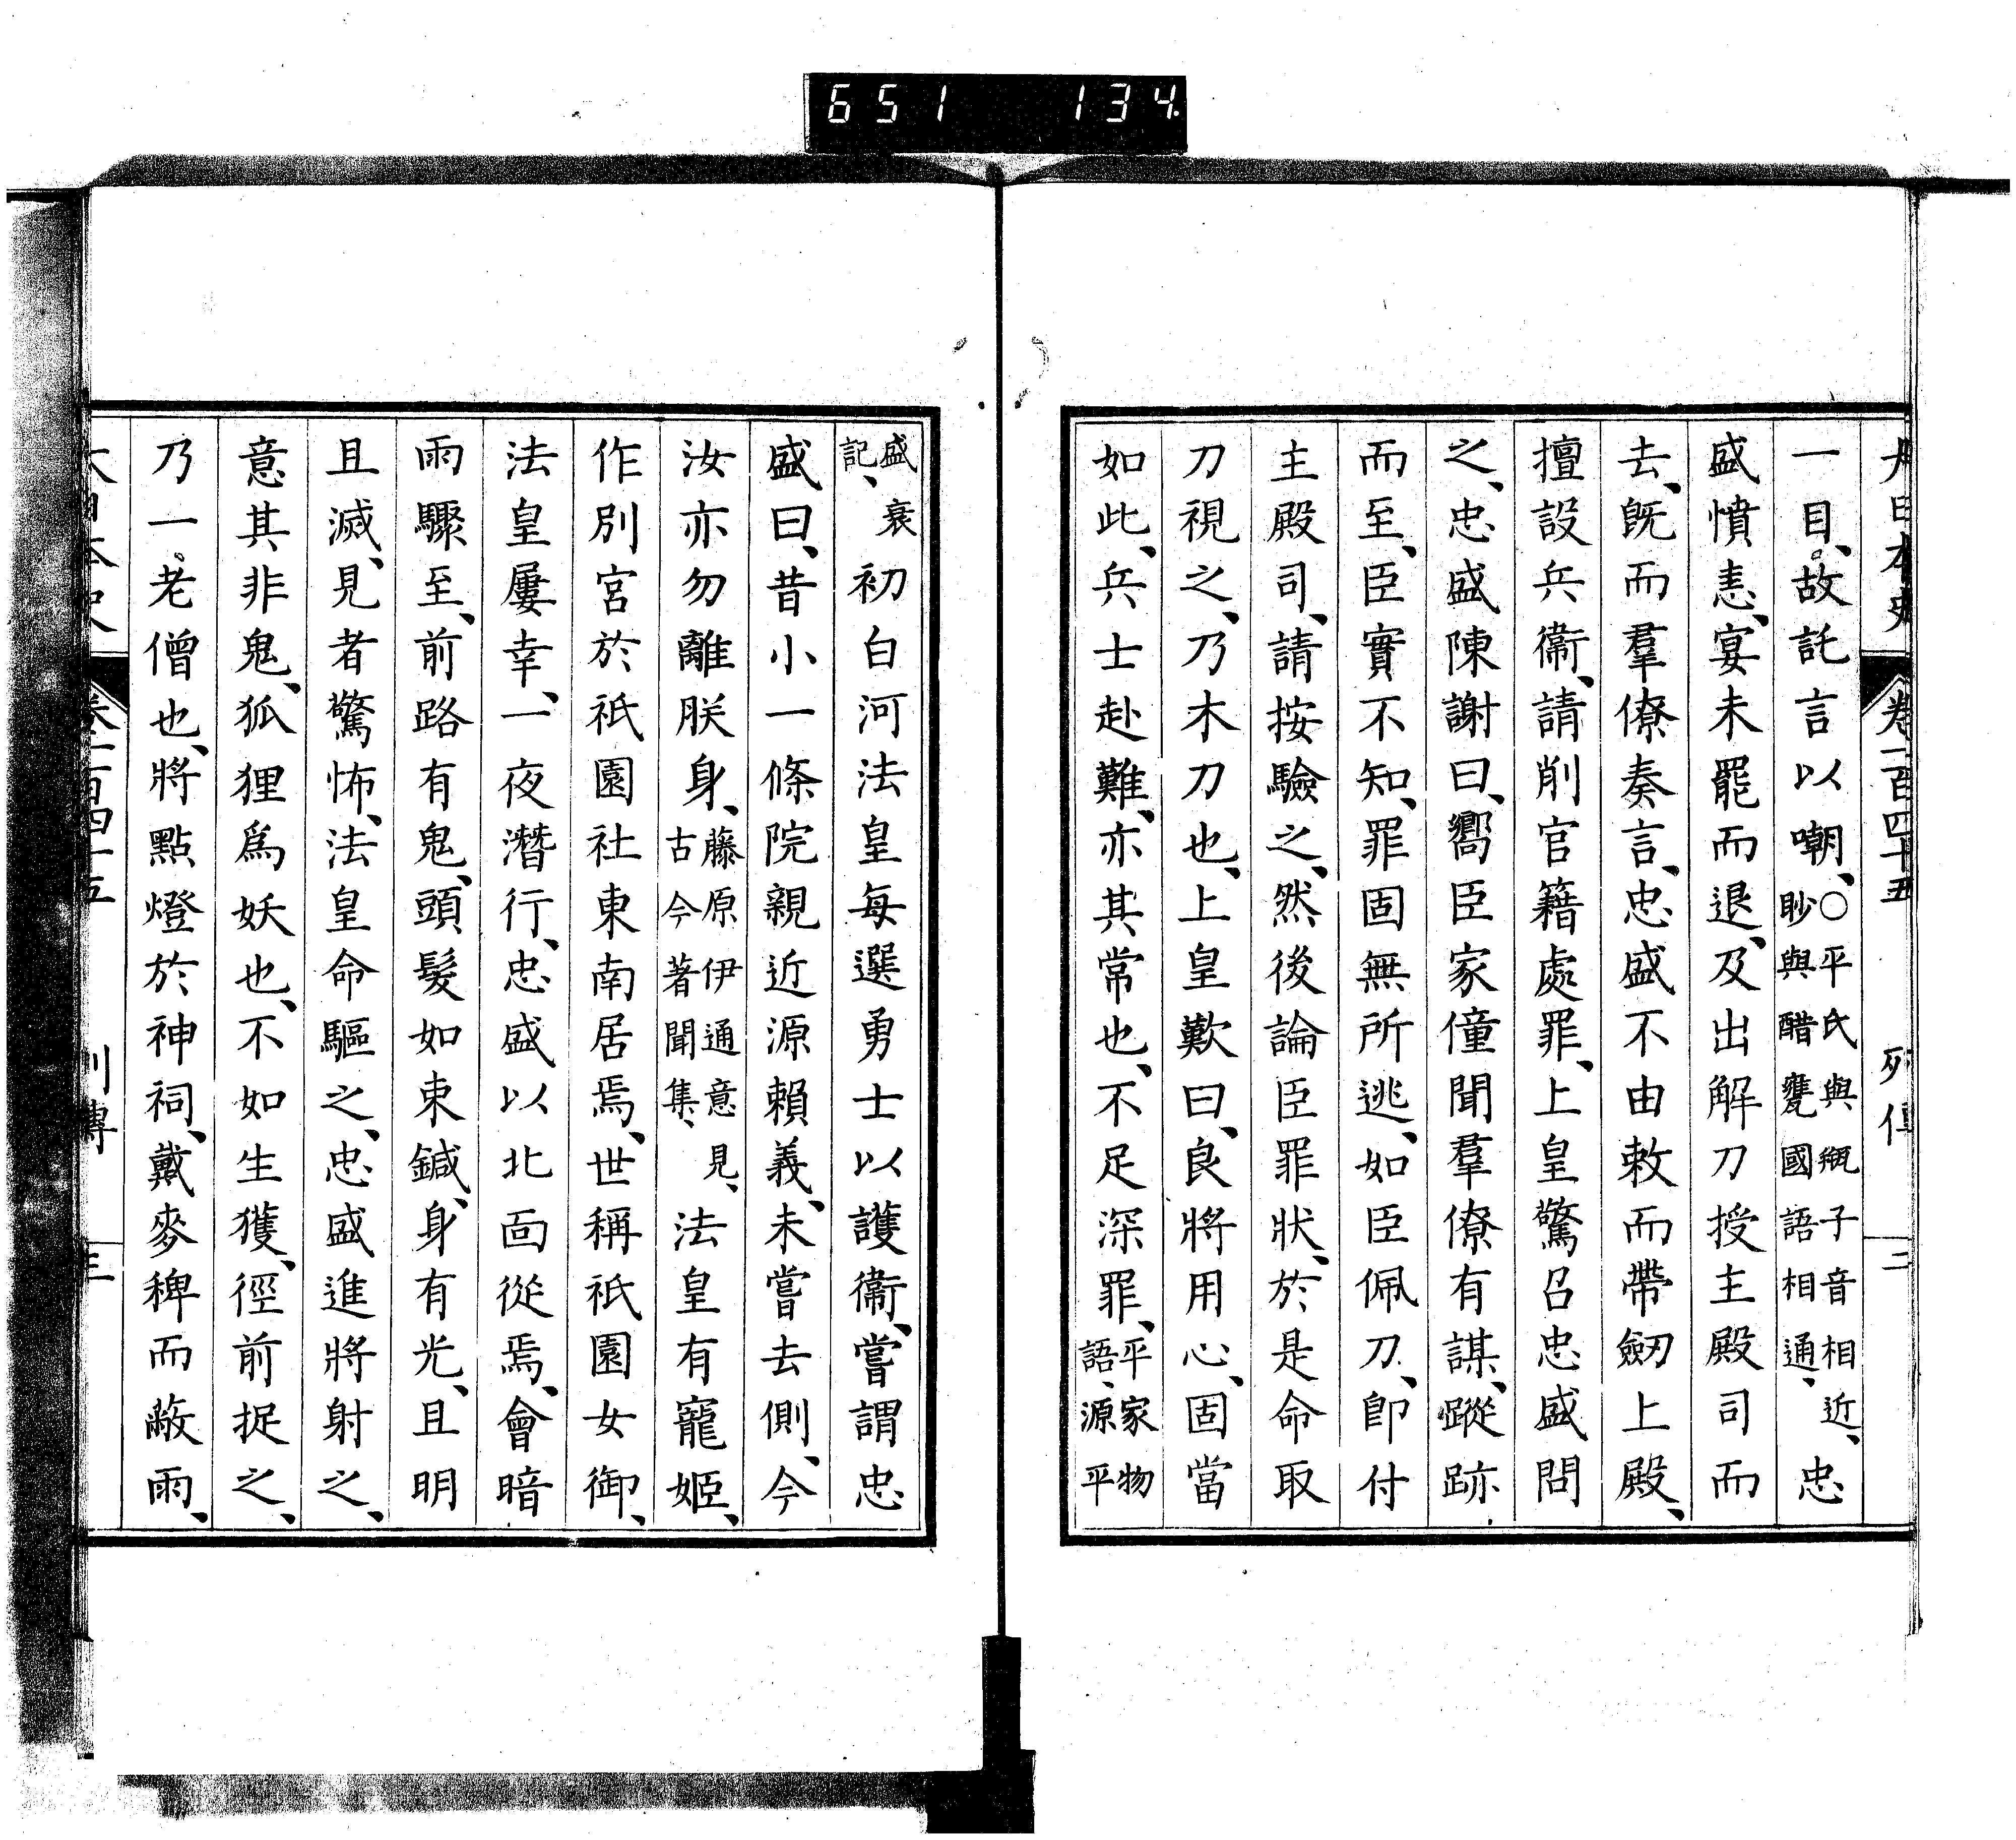 651 134.
大日本史 卷一百四十五 列傳 二
一目、故託言以嘲、○平氏與瓶子音相近、眇與醋甕國語相通、忠
盛憤恚、宴未罷而退、及出解刀授主殿司而
去、旣而羣僚奏言、忠盛不由敕而帶劒上殿、
擅設兵衞、請削官籍處罪、上皇驚召忠盛問
之、忠盛陳謝曰、嚮臣家僮聞羣僚有謀、蹤跡
而至、臣實不知、罪固無所逃、如臣佩刀、卽付
主殿司、請按驗之、然後論臣罪狀、於是命取
刀視之、乃木刀也、上皇歎曰、良將用心、固當
如此、兵士赴難、亦其常也、不足深罪、平家物語、源平
盛衰記、初白河法皇每選勇士以護衞、嘗謂忠
盛曰、昔小一條院親近源賴義、未嘗去側、今
汝亦勿離朕身、藤原伊通意見、古今著聞集、法皇有寵姬、
作別宮於祇園社東南居焉、世稱祇園女御、
法皇屢幸、一夜潛行、忠盛以北面從焉、會暗
雨驟至、前路有鬼、頭髮如束鍼、身有光、且明
且滅、見者驚怖、法皇命驅之、忠盛進將射之、
意其非鬼、狐狸爲妖也、不如生獲、徑前捉之、
乃一老僧也、將點燈於神祠、戴麥稗而蔽雨、
大日本史 卷一百四十五 列傳 三